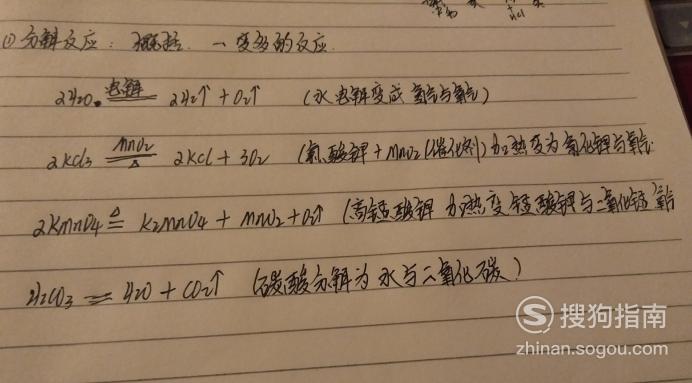 ①分解反应：概括. 一变多的反应.
2H2O 电解 2H2↑+O2↑ （水电解变成氢气与氧气）
2KCl3 MnO2 △ 2KCl+3O2 （氯酸钾+MnO2(催化剂)加热变为氯化钾与氧气.
2KMnO4 △ K2MnO4+MnO2+O2↑ （高锰酸钾加热变锰酸钾与二氧化锰氧气
H2CO3 == H2O+CO2↑ （碳酸分解为水与二氧化碳）
S 搜狗指南
zhinan.sogou.com